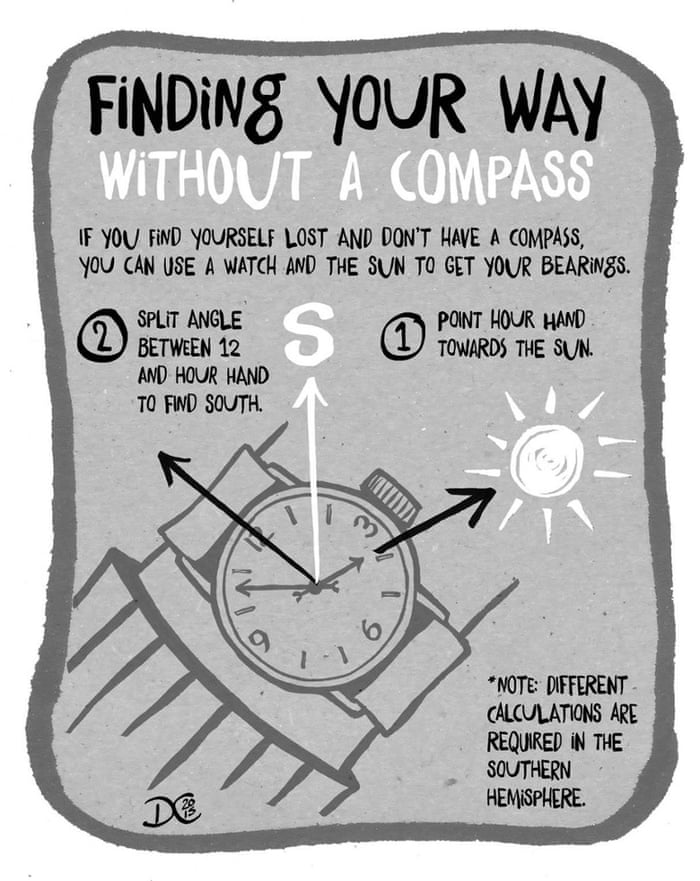 FINDING YOUR WAY
WITHOUT A COMPASS
IF YOU FIND YOURSELF LOST AND DON'T HAVE A COMPASS,
YOU CAN USE A WATCH AND THE SUN TO GET YOUR BEARINGS.
2 SPLIT ANGLE
BETWEEN 12
AND HOUR HAND
TO FIND SOUTH.
S
1 POINT HOUR HAND
TOWARDS THE SUN.
12
3
9
6
*NOTE: DIFFERENT
CALCULATIONS ARE
REQUIRED IN THE
SOUTHERN
HEMISPHERE.
DC 2013